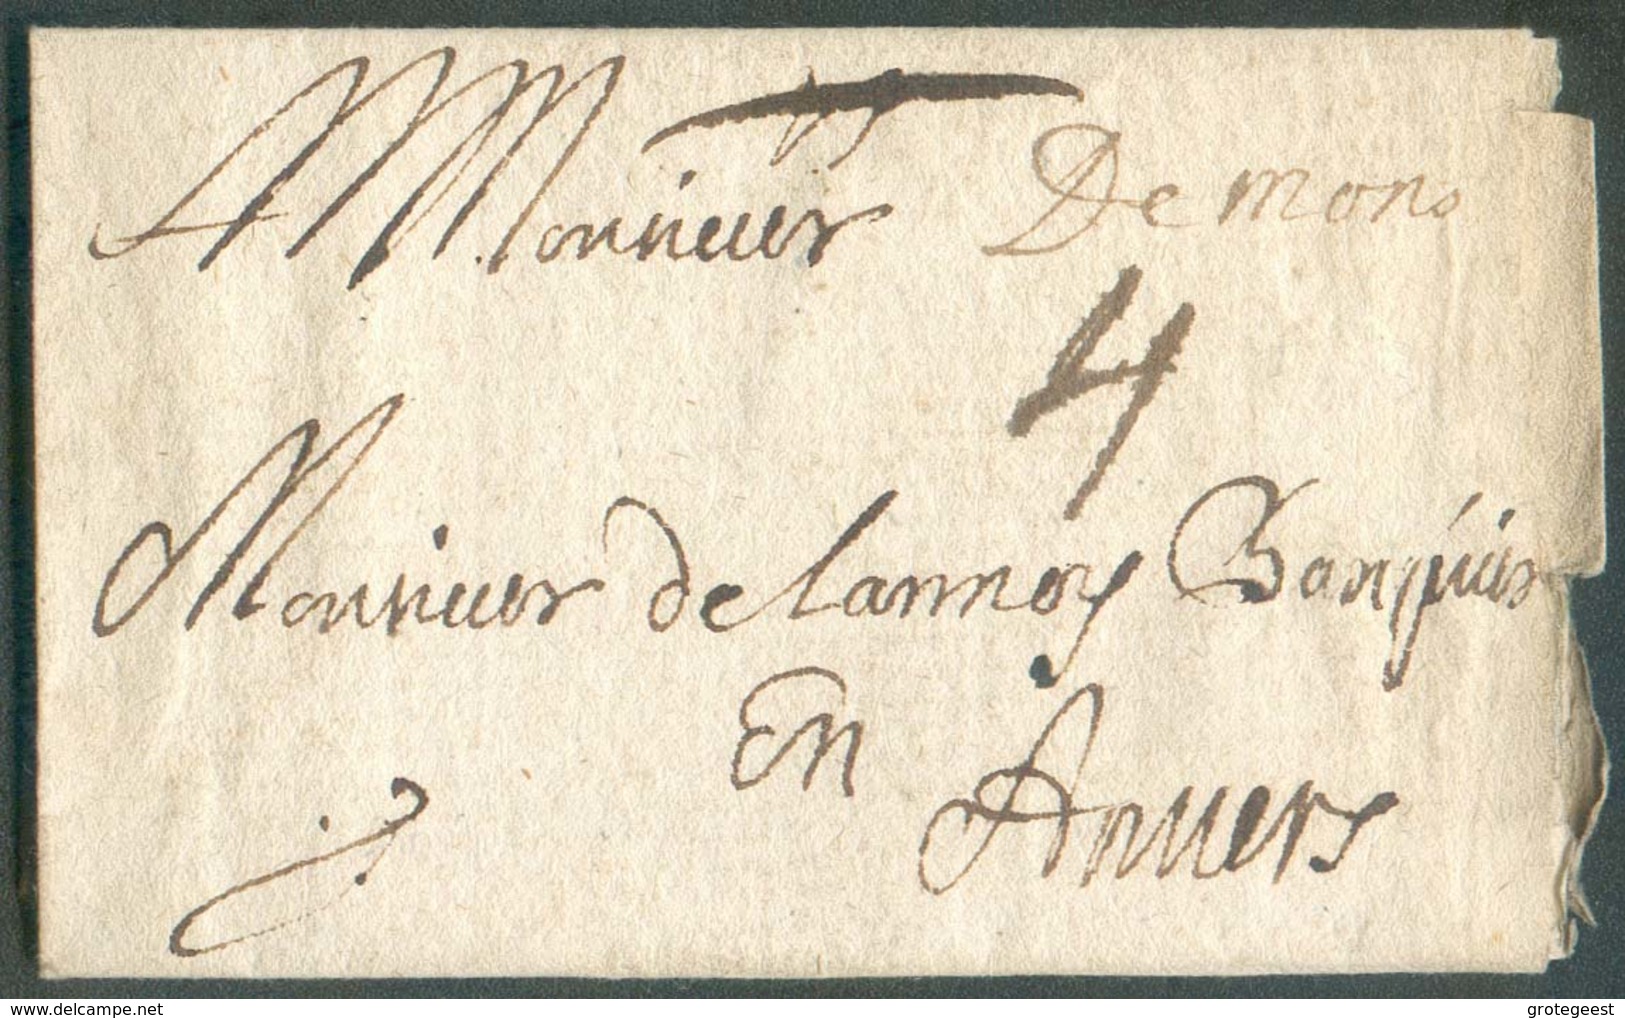 A Monsieur De mons
4
Monsieur de Lannoy Banquier
En
Anvers
delcampe.net
grotegeest